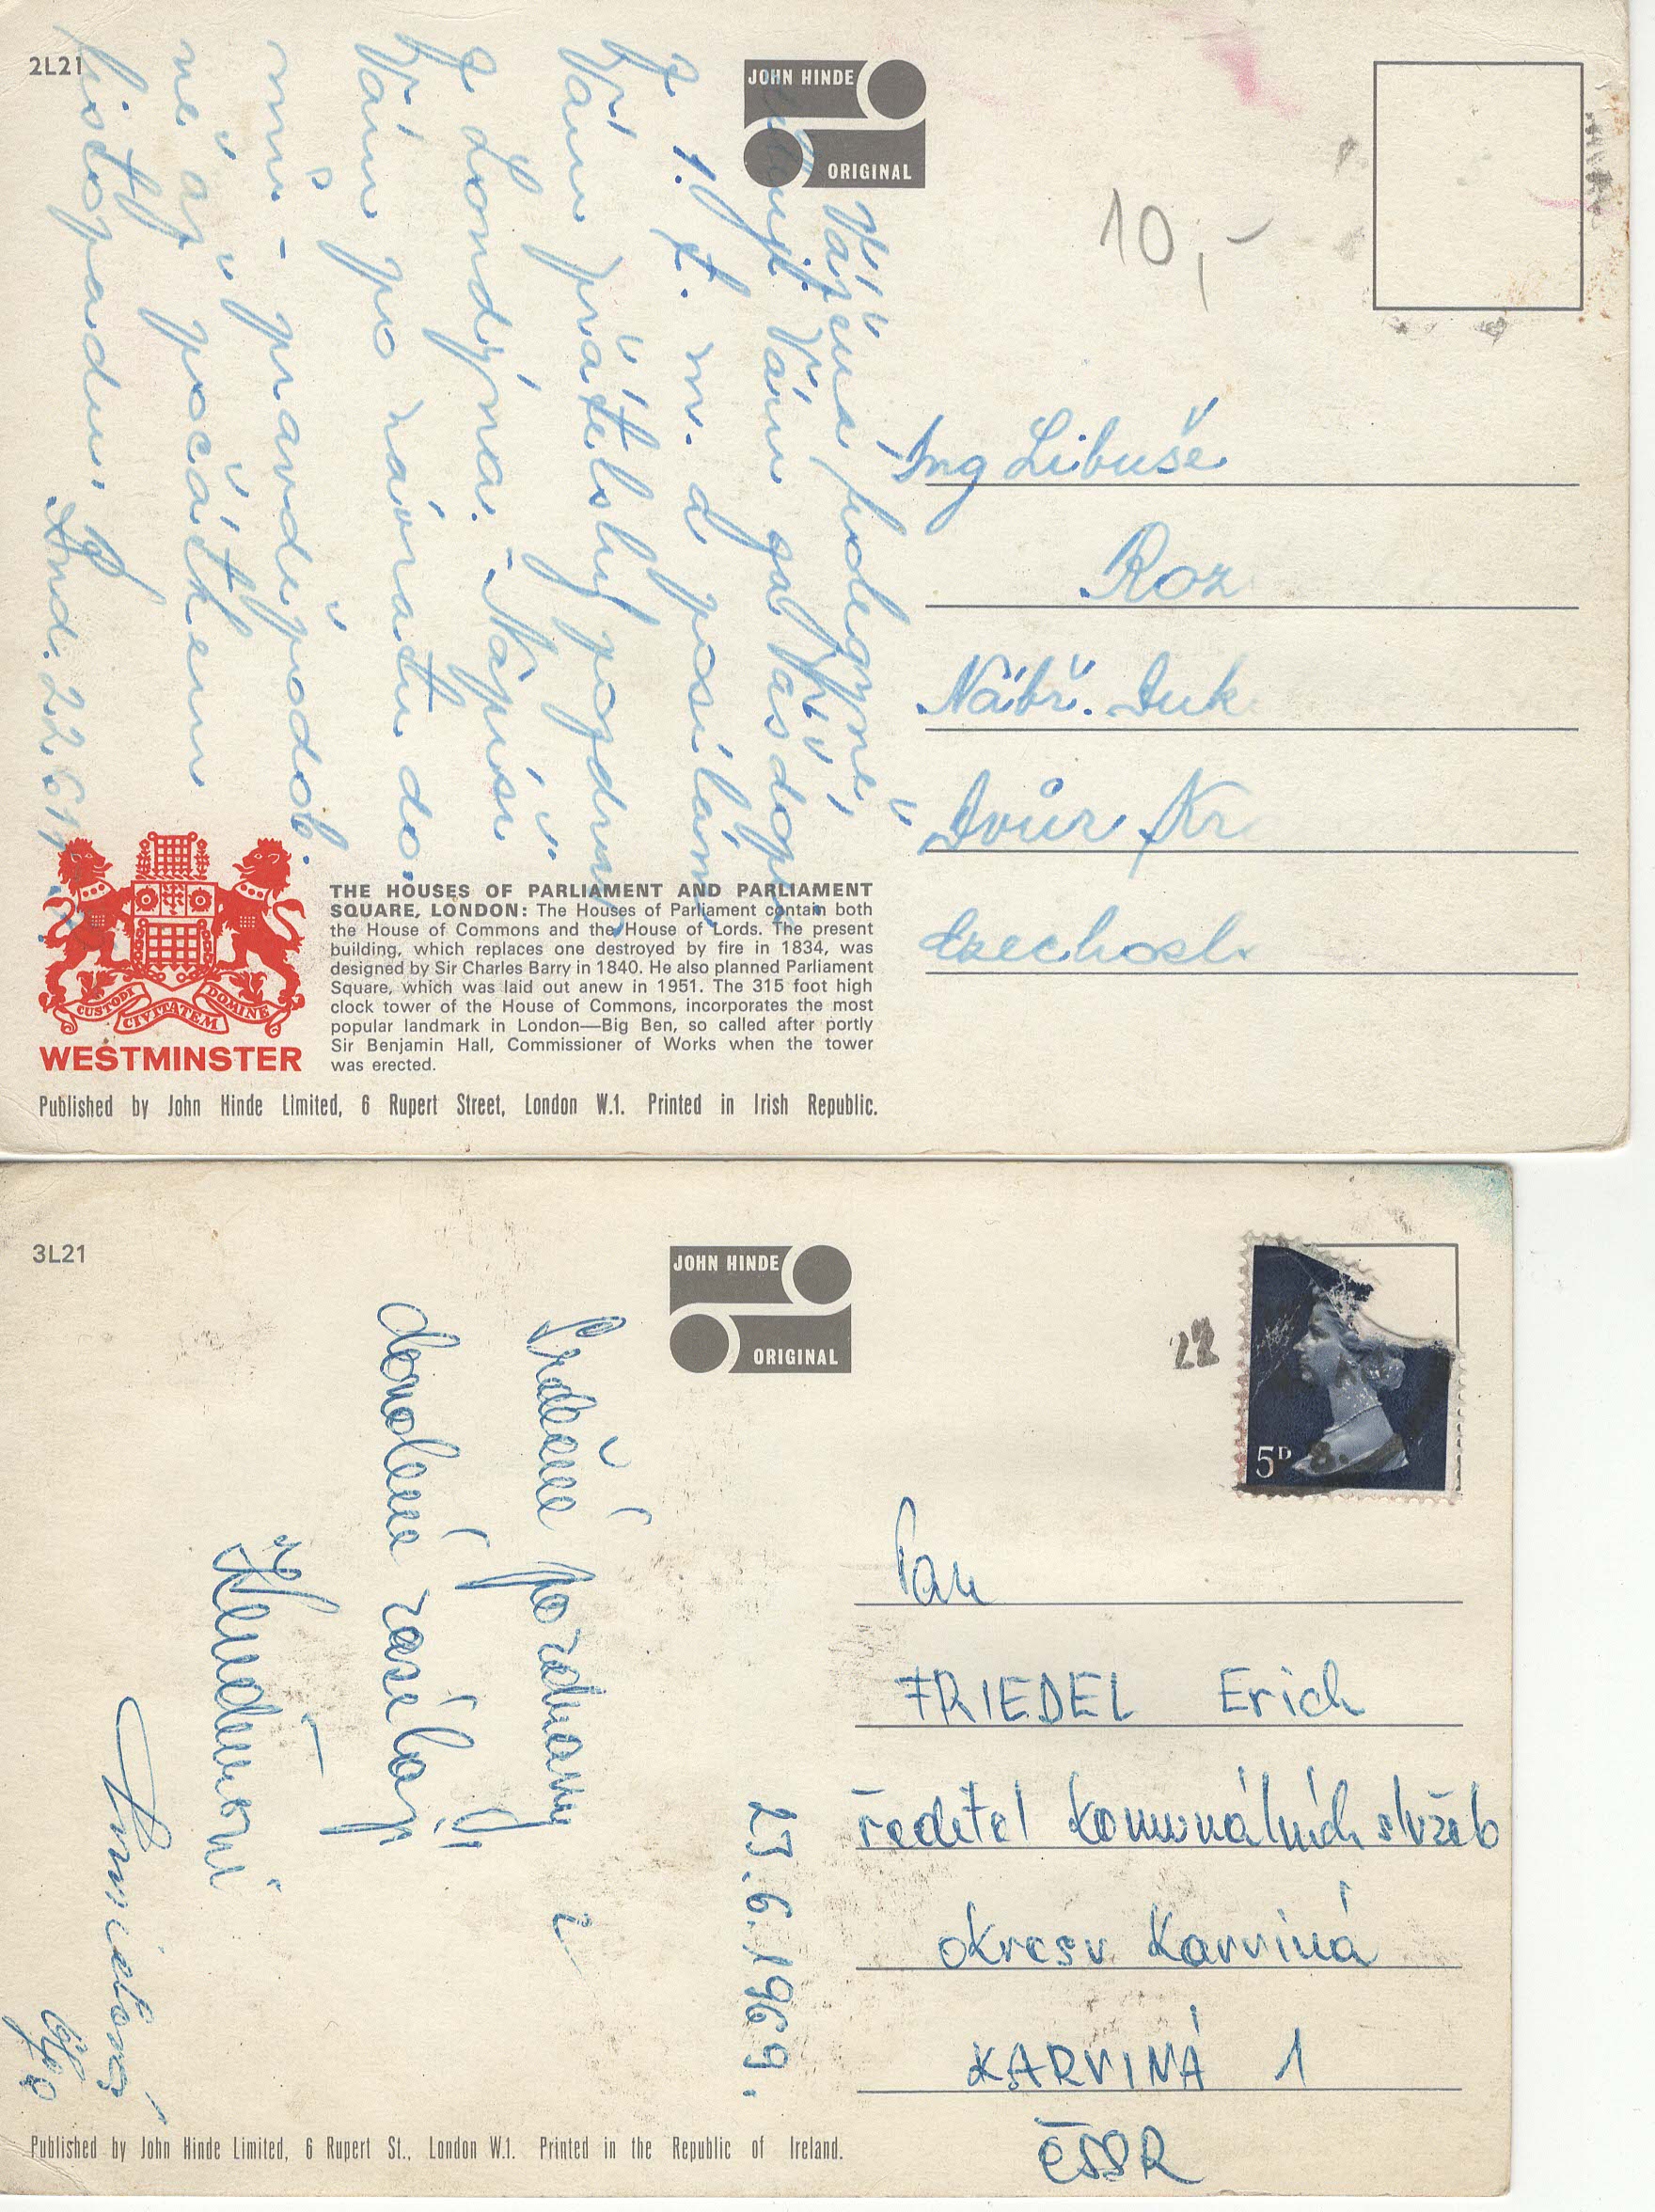 2L21
JOHN HINDE
ORIGINAL
10,-
Vážená kolegyně,
Vám za Váš dopis
z 1. t. m. a posílám
Vám přátelský pozdrav
z Londýna. Napíši
Vám po návratu do-
mů - pravděpodob.
ně až počátkem
listopadu.
Lond. 22.
Ing Libuše
Roz
Nábř. Duk
Dvůr Kr
Czechosl.
WESTMINSTER
CUSTODI CIVITATEM DOMINE
THE HOUSES OF PARLIAMENT AND PARLIAMENT
SQUARE, LONDON: The Houses of Parliament contain both
the House of Commons and the House of Lords. The present
building, which replaces one destroyed by fire in 1834, was
designed by Sir Charles Barry in 1840. He also planned Parliament
Square, which was laid out anew in 1951. The 315 foot high
clock tower of the House of Commons, incorporates the most
popular landmark in London—Big Ben, so called after portly
Sir Benjamin Hall, Commissioner of Works when the tower
was erected.
Published by John Hinde Limited, 6 Rupert Street, London W.1. Printed in Irish Republic.
3L21
JOHN HINDE
ORIGINAL
22
5D
23.6.1969.
Srdečné pozdravy z
dovolené zasílají
Pan
FRIEDEL Erich
ředitel komunálních služeb
okresu Karviná
KARVINÁ 1
ČSSR
Published by John Hinde Limited, 6 Rupert St., London W.1. Printed in the Republic of Ireland.